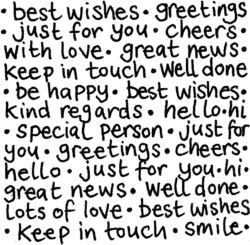 • best wishes • greetings
• just for you • cheers •
with love • great news •
keep in touch • Well done
• be happy • best wishes •
kind regards • hello • hi
• special person • just for
you • greetings • cheers •
hello • just for you • hi •
great news • Well done •
Lots of love • best wishes
• Keep in touch • smile •